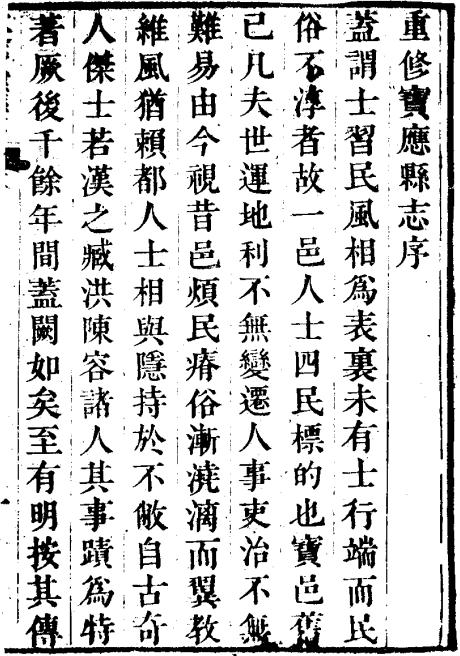 重修寶應縣志序
蓋謂士習民風相爲表裏未有士行端而民
俗不淳者故一邑人士四民標的也寶邑舊
已凡夫世運地利不無變遷人事吏治不無
難易由今視昔邑煩民瘠俗漸澆漓而翼教
維風猶賴都人士相與隱持於不敝自古奇
人傑士若漢之臧洪陳容諸人其事蹟爲特
著厥後千餘年間蓋闕如矣至有明按其傳